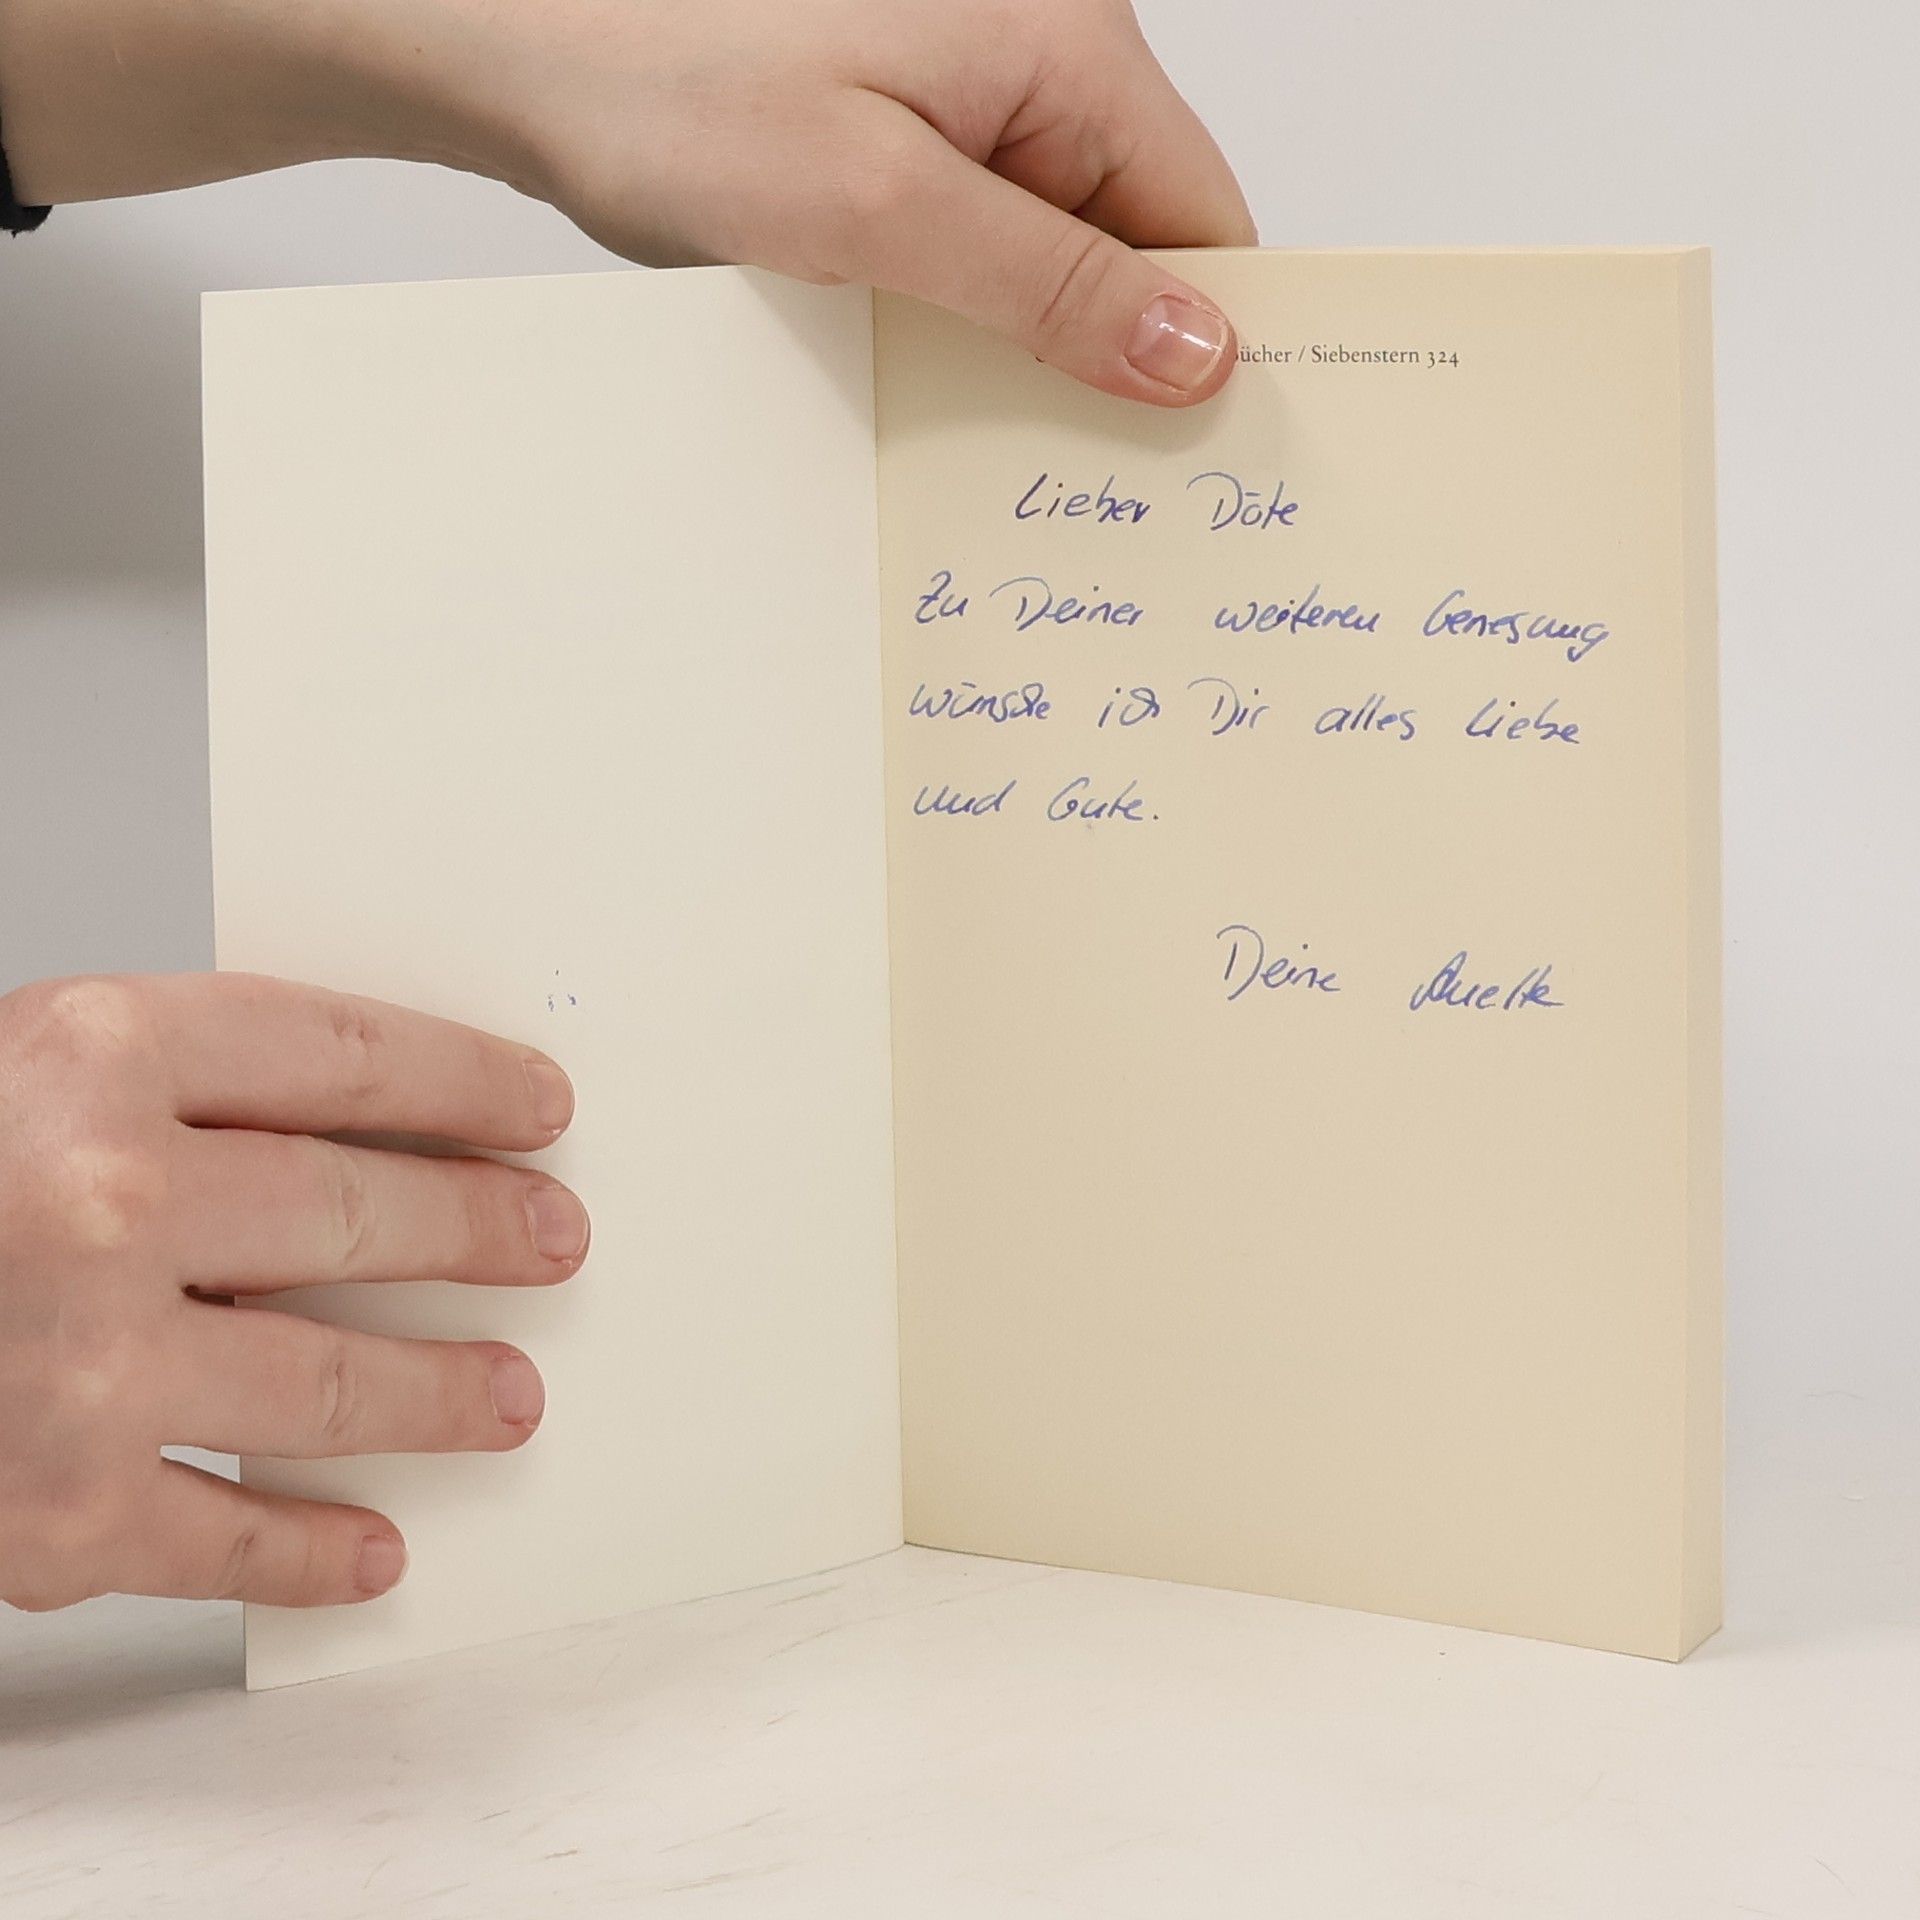 ücher / Siebenstern 324
Lieber Döte
Zu Deiner weiteren Genesung
wünsche ich Dir alles Liebe
und Gute.
Deine